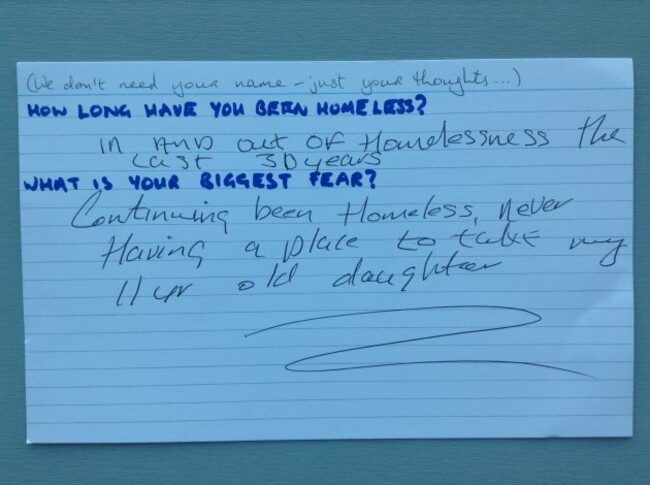 (We don't need your name - just your thoughts...)
HOW LONG HAVE YOU BEEN HOMELESS?
IN AND out OF Homelessness the
Last 30 years
WHAT IS YOUR BIGGEST FEAR?
Continuing been Homeless, never
Having a place to take my
11 yr old daughter